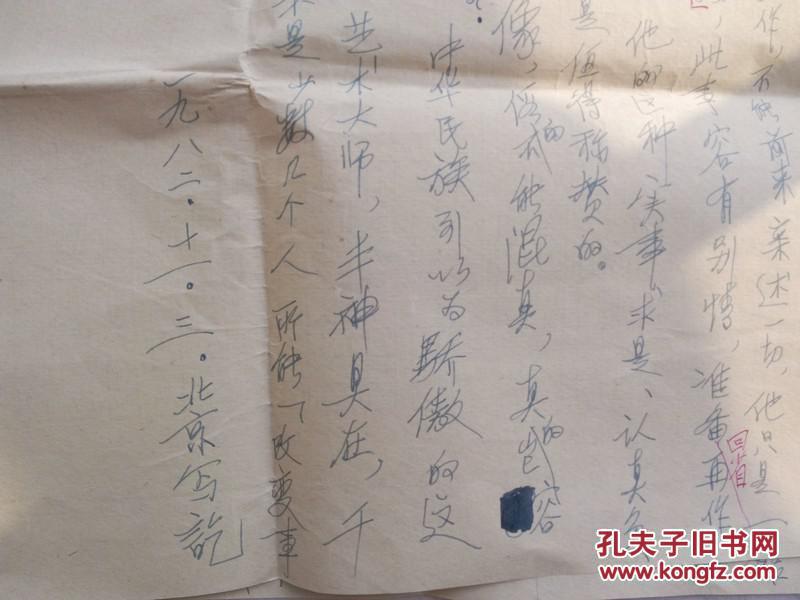 作，不能前来亲述一切，他只是一
，此事容有别情，准备再作
回省
他的这种“实事求是、认真负
是值得称赞的。
像，伪的不能混真，真的岂容
中华民族引以为骄傲的这
艺术大师，半神具在，千
不是少数几个人所能「改变事
一九八二.十一.三。北京写讫
孔夫子旧书网
www.kongfz.com